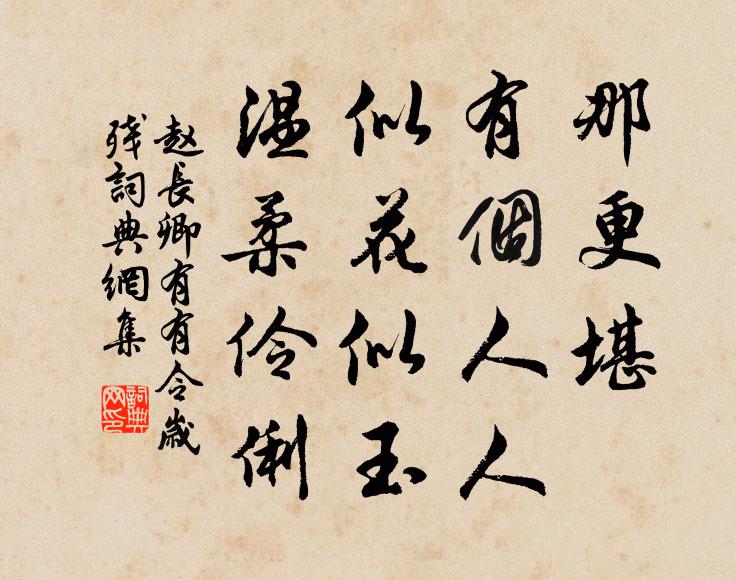 那更堪
有個人人
似花似玉
温柔伶俐
赵長卿有有令歲
残詞典網集
詞典
网印